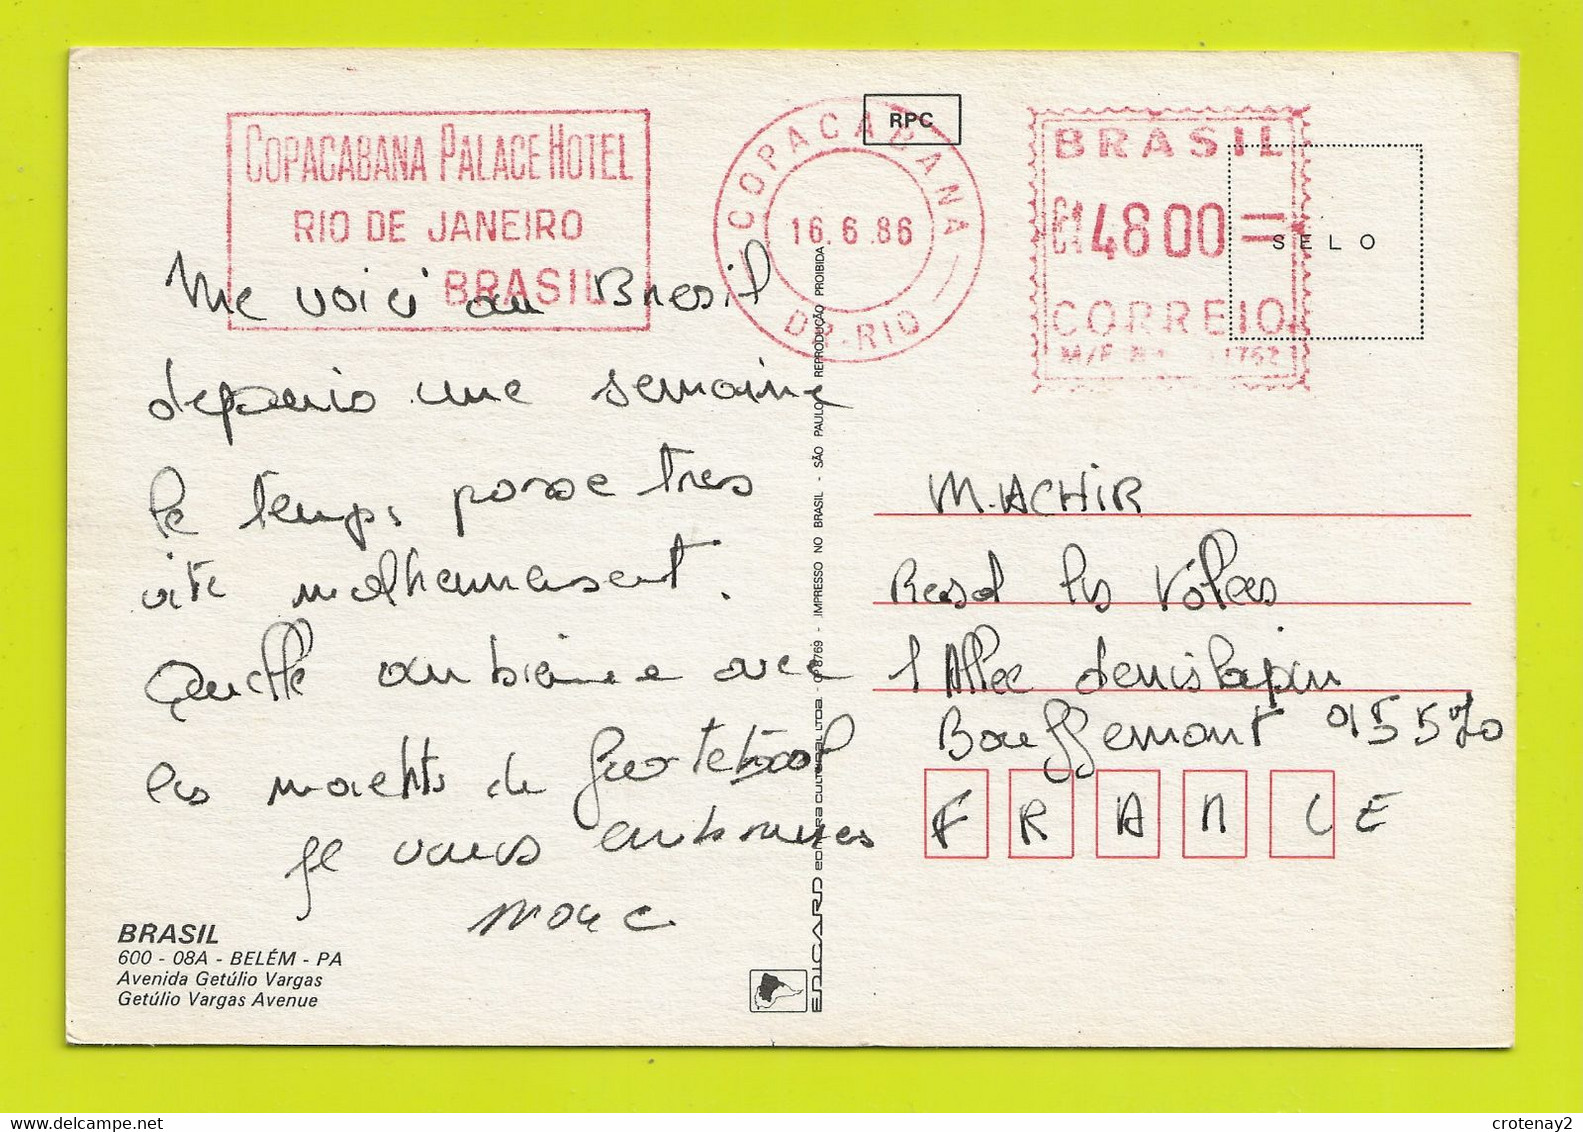 COPACABANA PALACE HOTEL
RIO DE JANEIRO
BRASIL
COPACABANA
16.6.86
DR-RIO
RPC
BRASIL
4800=
CORREIO
SELO
Me voici au Bresil
depuis une semaine
le temps passe tres
vite malheureusement.
Quelle ambiance avec
les matchs de
Je vous embrasses
Marc
M. ACHIR
Resd les
1 Allee denis papin
Bouffemont 95570
FRANCE
BRASIL
600 - 08A - BELÉM - PA
Avenida Getúlio Vargas
Getúlio Vargas Avenue
EDICARD EDITORA CULTURAL LTDA. - 8769 - IMPRESSO NO BRASIL - SÃO PAULO REPRODUÇÃO PROIBIDA
crotenay2